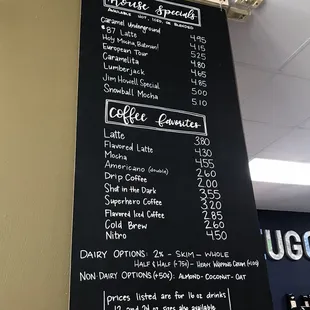 House Specials
AVAILABLE HOT, ICED, OR BLENDED
Caramel Underground 4.95
#87 Latte 4.15
Holy Mocha, Batman! 5.25
European Tour 4.80
Caramelita 4.65
Lumberjack 4.85
Jim Howell Special 5.00
Snowball Mocha 5.10
coffee favorites
Latte 3.80
Flavored Latte 4.30
Mocha 4.55
Americano (double) 2.60
Drip Coffee 2.00
Shot in the Dark 3.55
Superhero Coffee 3.20
Flavored Iced Coffee 2.85
Cold Brew 2.60
Nitro 4.50
DAIRY OPTIONS: 2% - SKIM - WHOLE
HALF & HALF (+75¢) - HEAVY WHIPPING CREAM
NON-DAIRY OPTIONS (+50¢): ALMOND - COCONUT - OAT
prices listed are for 16 oz drinks
12 and 24 oz sizes also available
UGO